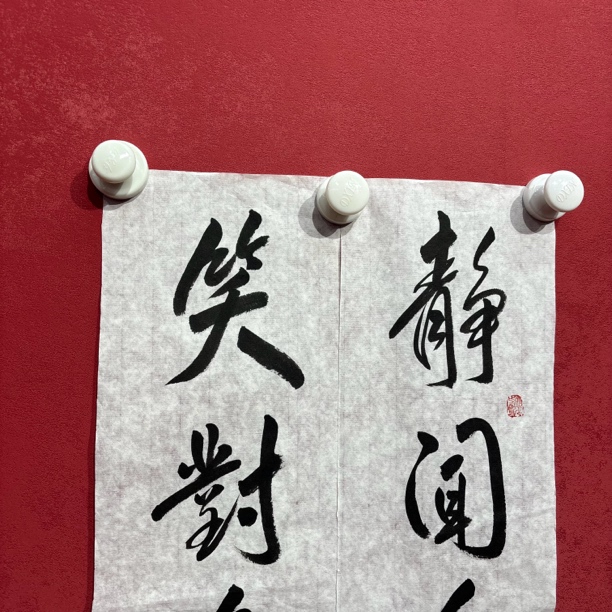 静聞
笑對